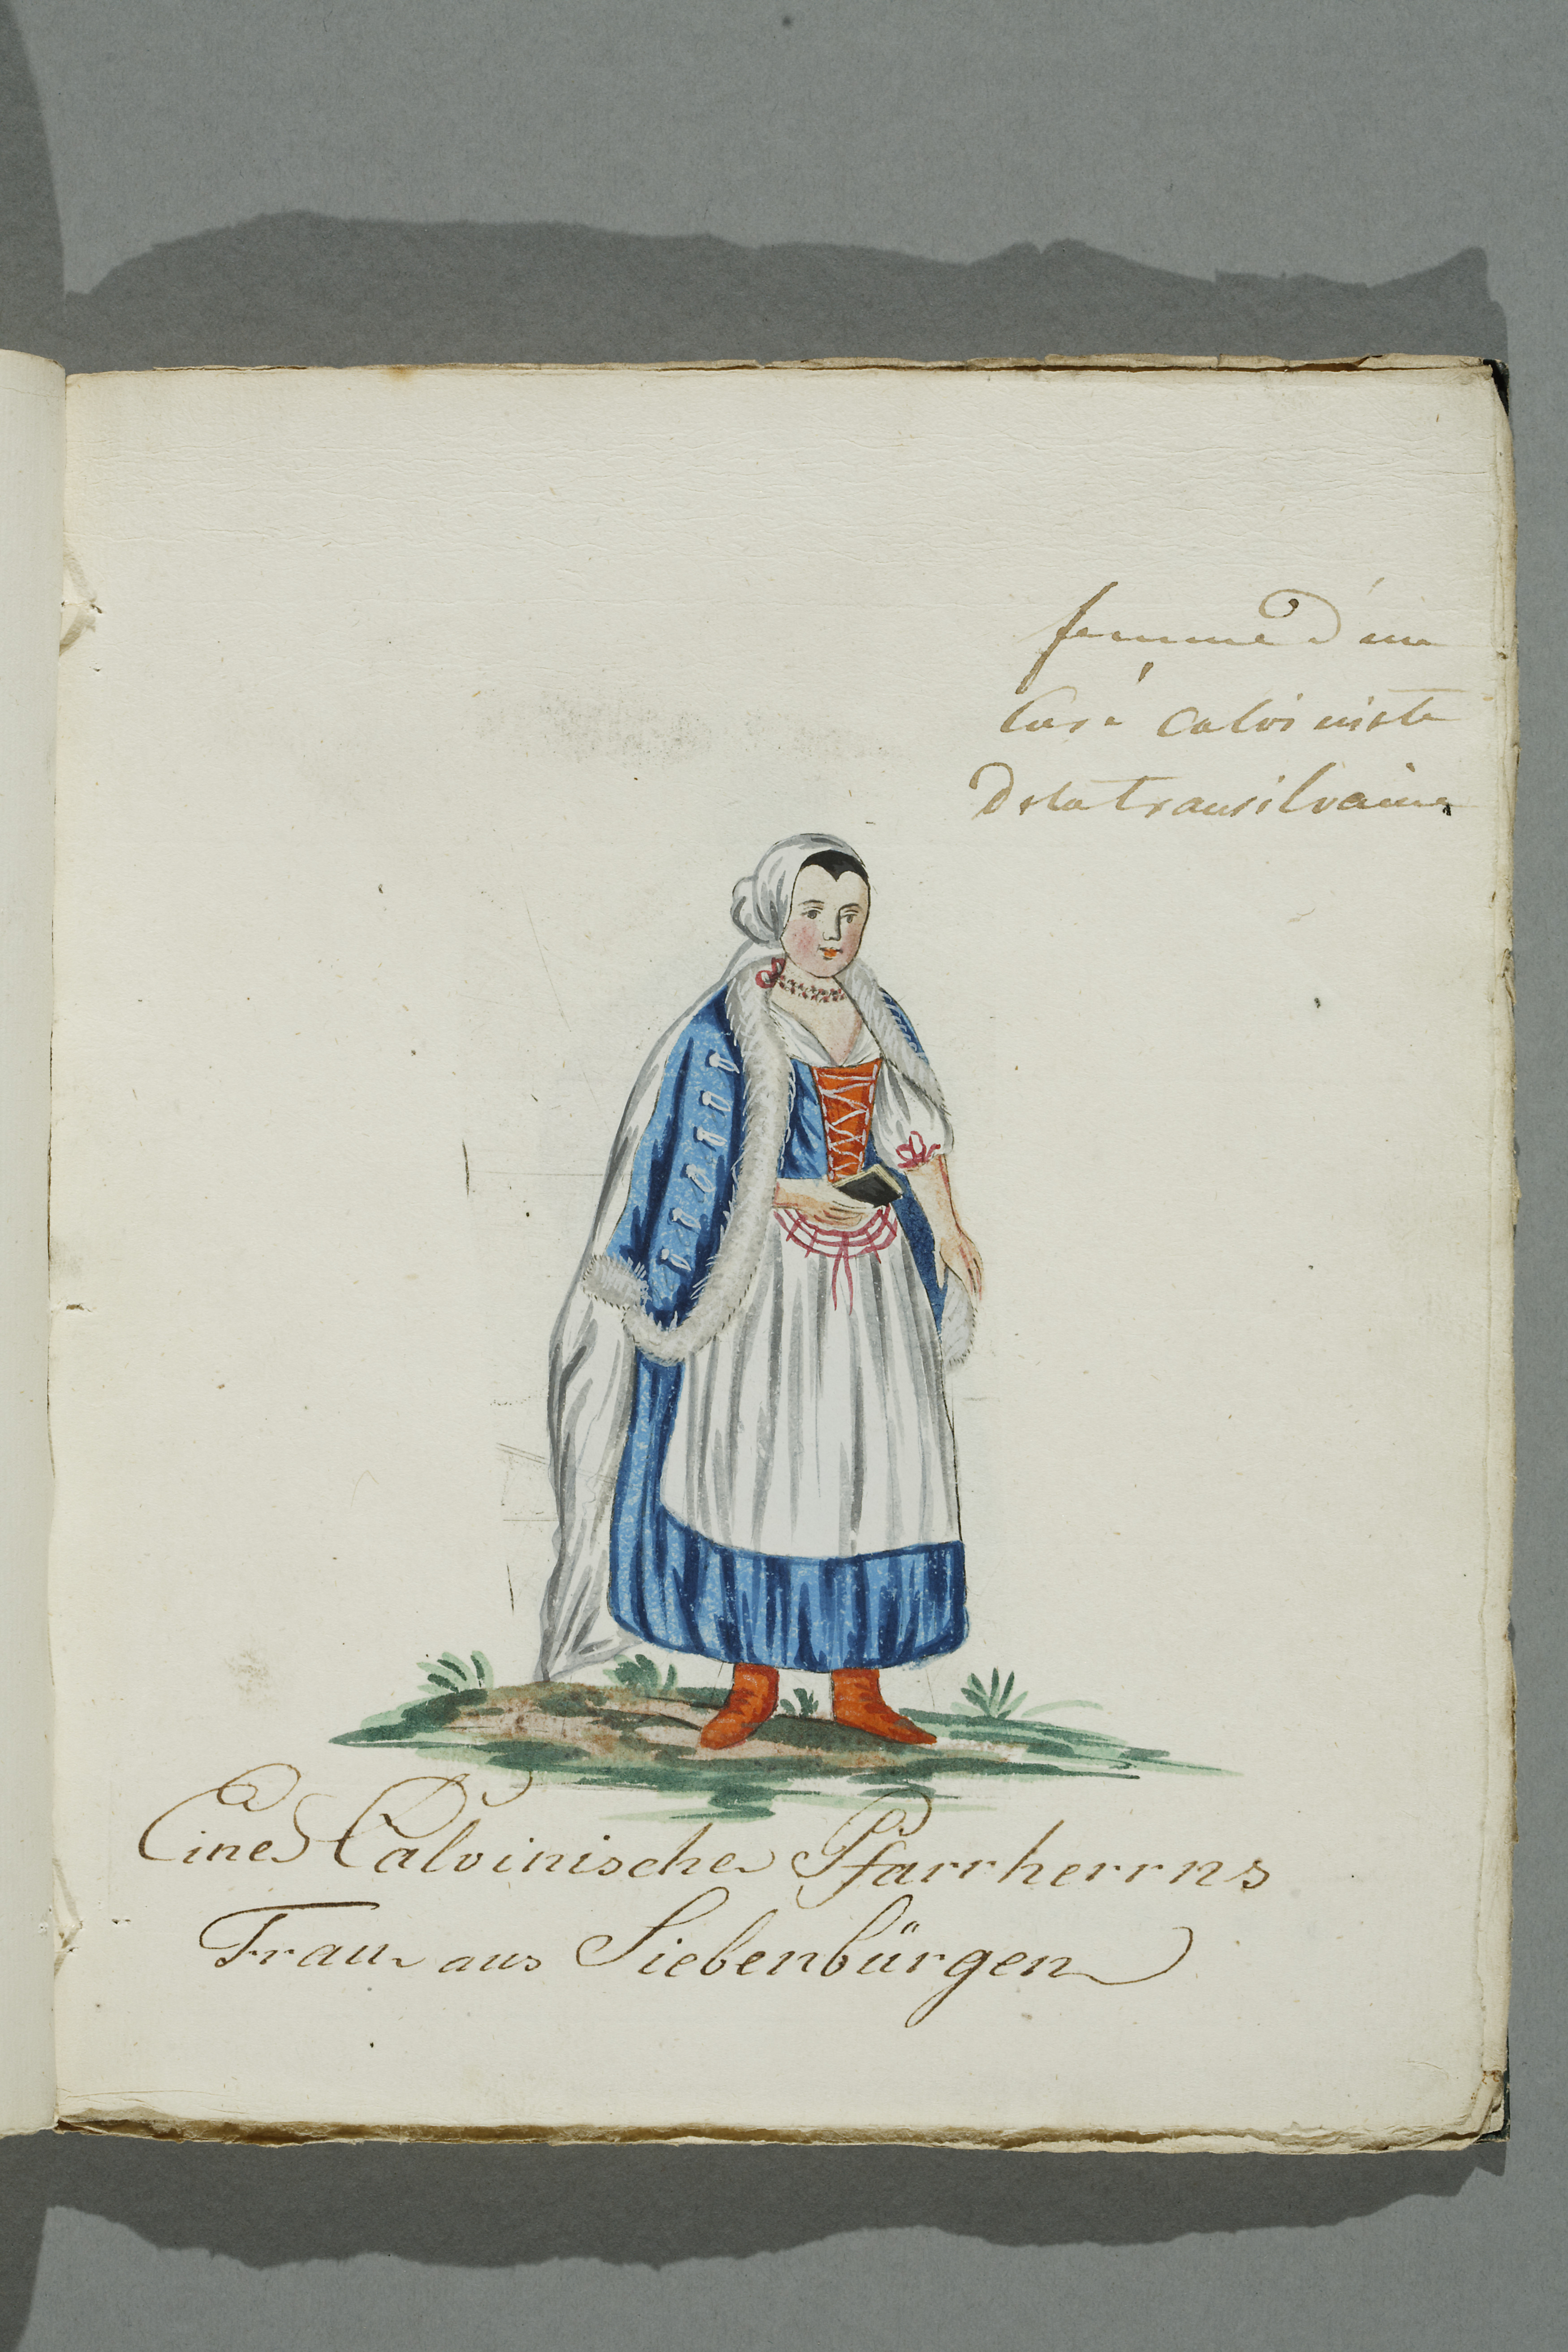 femme d'un
Curé calviniste
dela transilvaine
Eines Calvinische Pfarrherrns
Frau aus Siebenbürgen